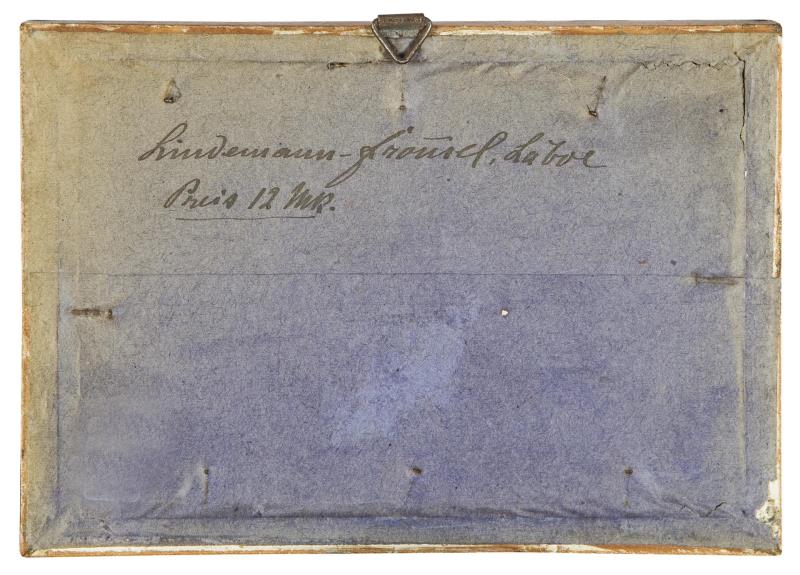 Lindemann-Frömel, Laboe
Preis 12 Mk.